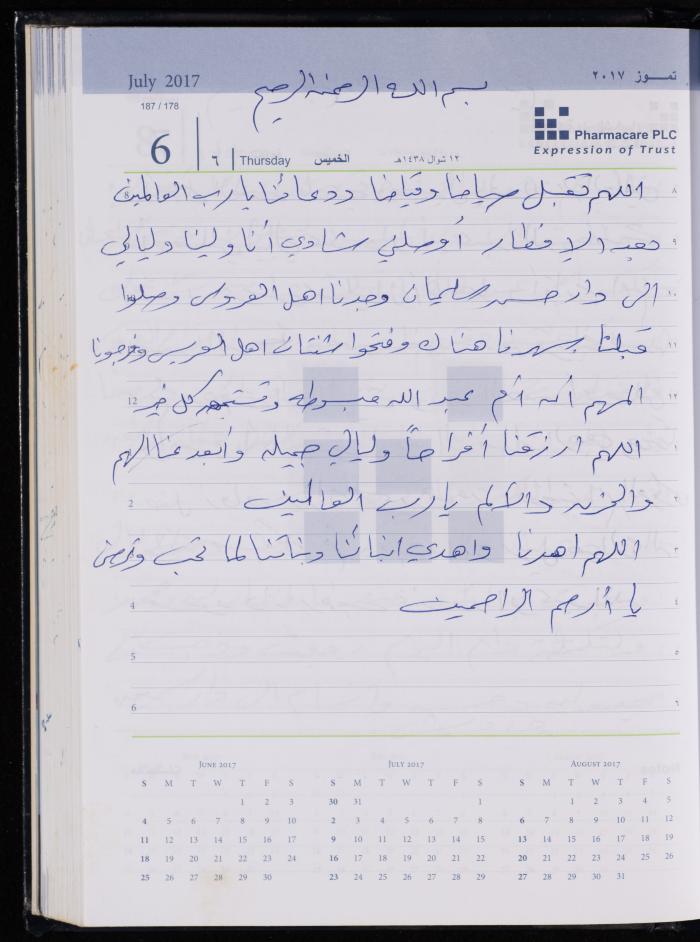 July 2017
تمـــوز ٢٠١٧
بسم الله الرحمن الرحيم
187 / 178
6
٦
Thursday
الخميس
١٢ شوال ١٤٣٨هـ
Pharmacare PLC
Expression of Trust
٨ اللهم تقبل صيامنا وقيامنا ودعائنا يا رب العالمين
٩ بعد الافطار أوصلني شادي أنا ولينا وليالي
١٠ الى دار حسن سليمان وجدنا اهل العروس وصلوا
١١ قبلنا سهرنا هناك وفتحوا شنتات اهل العريس وفرجونا
١٢ المهم أنه أم عبد الله مبسوطه وتستاهل كل خير 12
١ اللهم ارزقنا أفراحاً وليالي جميله وأبعد عنا الهم
٢ والحزن والألم يا رب العالمين 2
٣ اللهم اهدنا واهدي ابنائنا وبناتنا لما تحب وترضى
٤ يا أرحم الراحمين 4
٥ 5
٦ 6
June 2017
S M T W T F S
1 2 3
4 5 6 7 8 9 10
11 12 13 14 15 16 17
18 19 20 21 22 23 24
25 26 27 28 29 30
July 2017
S M T W T F S
30 31 1
2 3 4 5 6 7 8
9 10 11 12 13 14 15
16 17 18 19 20 21 22
23 24 25 26 27 28 29
August 2017
S M T W T F S
1 2 3 4 5
6 7 8 9 10 11 12
13 14 15 16 17 18 19
20 21 22 23 24 25 26
27 28 29 30 31